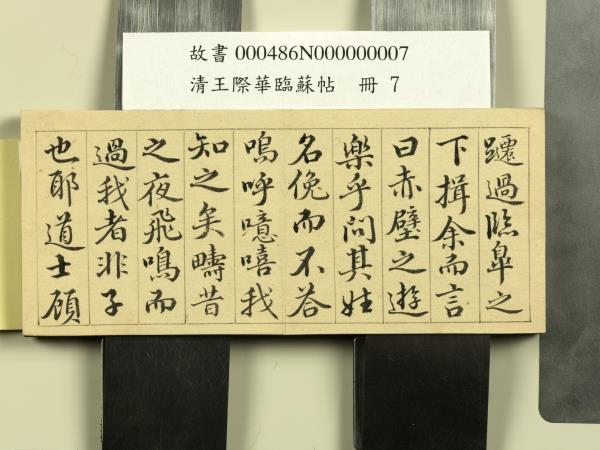 故書 000486N000000007
清王際華臨蘇帖 冊 7
躚過臨皐之
下揖余而言
曰赤壁之遊
樂乎問其姓
名俛而不荅
嗚呼噫嘻我
知之矣疇昔
之夜飛鳴而
過我者非子
也耶道士顧